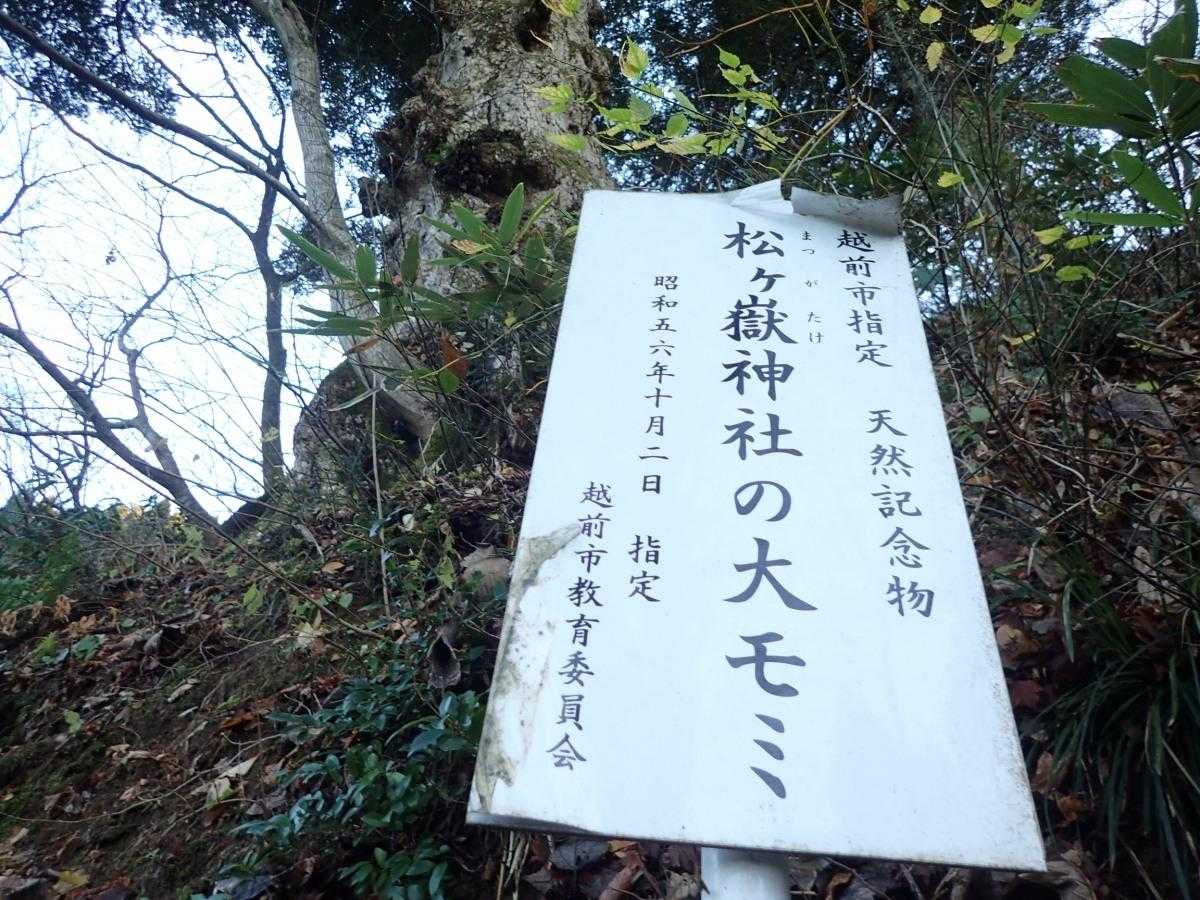 越前市指定 天然記念物
まつ が たけ
松ヶ嶽神社の大モミ
昭和五六年十月二日 指定
越前市教育委員会